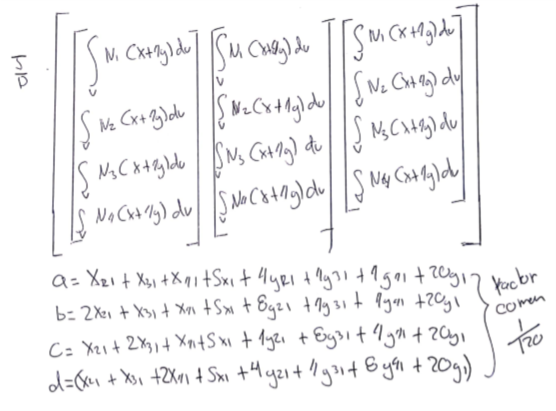 J/D
∫v N1 (x+4y) dv ∫v N1 (x+4y) dv ∫v N1 (x+4y) dv
∫v N2 (x+4y) dv ∫v N2 (x+4y) dv ∫v N2 (x+4y) dv
∫v N3 (x+4y) dv ∫v N3 (x+4y) dv ∫v N3 (x+4y) dv
∫v N4 (x+4y) dv ∫v N4 (x+4y) dv ∫v N4 (x+4y) dv
a = X21 + X31 + X41 + 5x1 + 4y21 + 4y31 + 4y41 + 20y1
b = 2X21 + X31 + X41 + 5x1 + 8y21 + 4y31 + 4y41 + 20y1
c = X21 + 2X31 + X41 + 5x1 + 4y21 + 8y31 + 4y41 + 20y1
d = (X21 + X31 + 2X41 + 5x1 + 4y21 + 4y31 + 8y41 + 20y1)
factor
comun
1/120